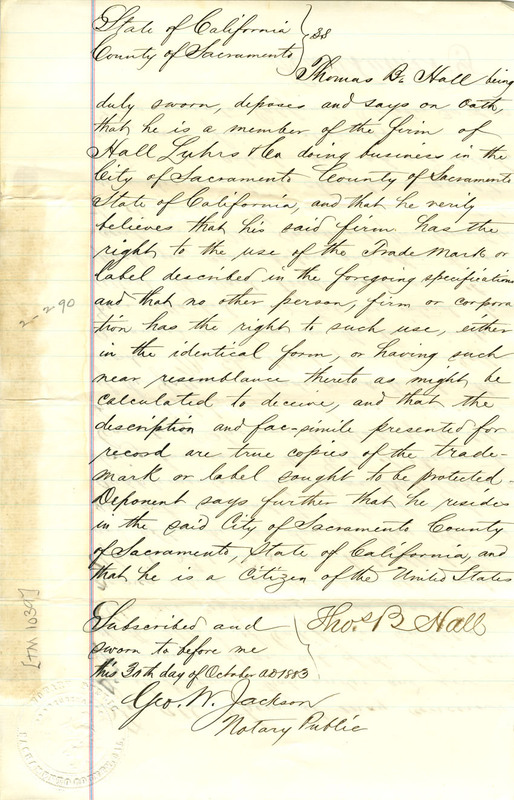 State of California
County of Sacramento } ss
Thomas B. Hall being
duly sworn, deposes and says on oath,
that he is a member of the firm of
Hall Luhrs & Co doing business in the
City of Sacramento County of Sacramento
State of California, and that he verily
believes that his said firm has the
right to the use of the Trade Mark or
label described in the foregoing specifications
and that no other person, firm or corpora
tion has the right to such use, either
in the identical form, or having such
near resemblance thereto as might be
calculated to deceive, and that the
description and fac-simile presented for
record are true copies of the trade-
mark or label sought to be protected-
Deponent says further that he resides
in the said City of Sacramento County
of Sacramento, State of California, and
that he is a Citizen of the United States
Thos B Hall
Subscribed and
sworn to before me
this 30th day of October AD 1883
Geo. W. Jackson
Notary Public
2-290
[TM 1039]